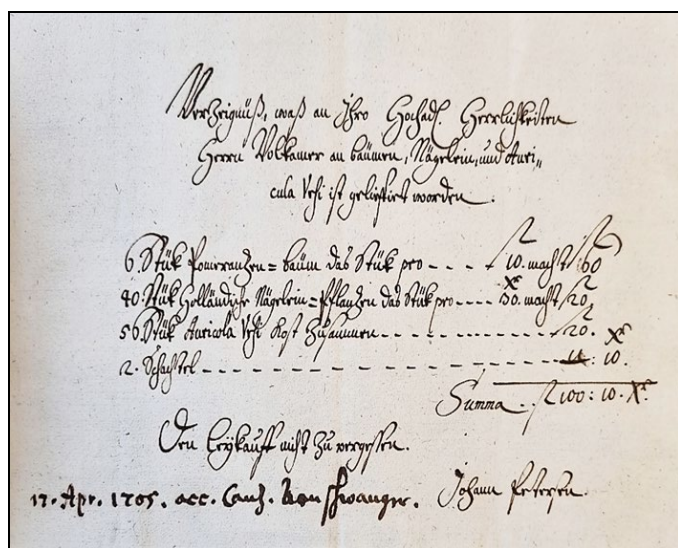 Verzeignüß, waß an Ihro Hochadl. Herrlichkeiten
Herrn Volkamer an bäumen, Nägelein, und Auri„
cula Vrsi ist geliefert worden.
6. Stük Pomeranzen = bäum das Stük pro - - - - f 10. macht f 60
40. Stük Holländische Nägelein = Pflanzen das Stük pro - - - - 30. Xr macht f 20.
56 Stük Auricola Vrsi kost zusammen - - - - - - - - - - f 20.
2. Schachtel - - - - - - - - - - - - - - - : 10. Xr
Summa . . f 100 : 10. Xr.
Den Leykauff nicht zu vergessen.
Johann Petersen.
17. Apr. 1705. acc.